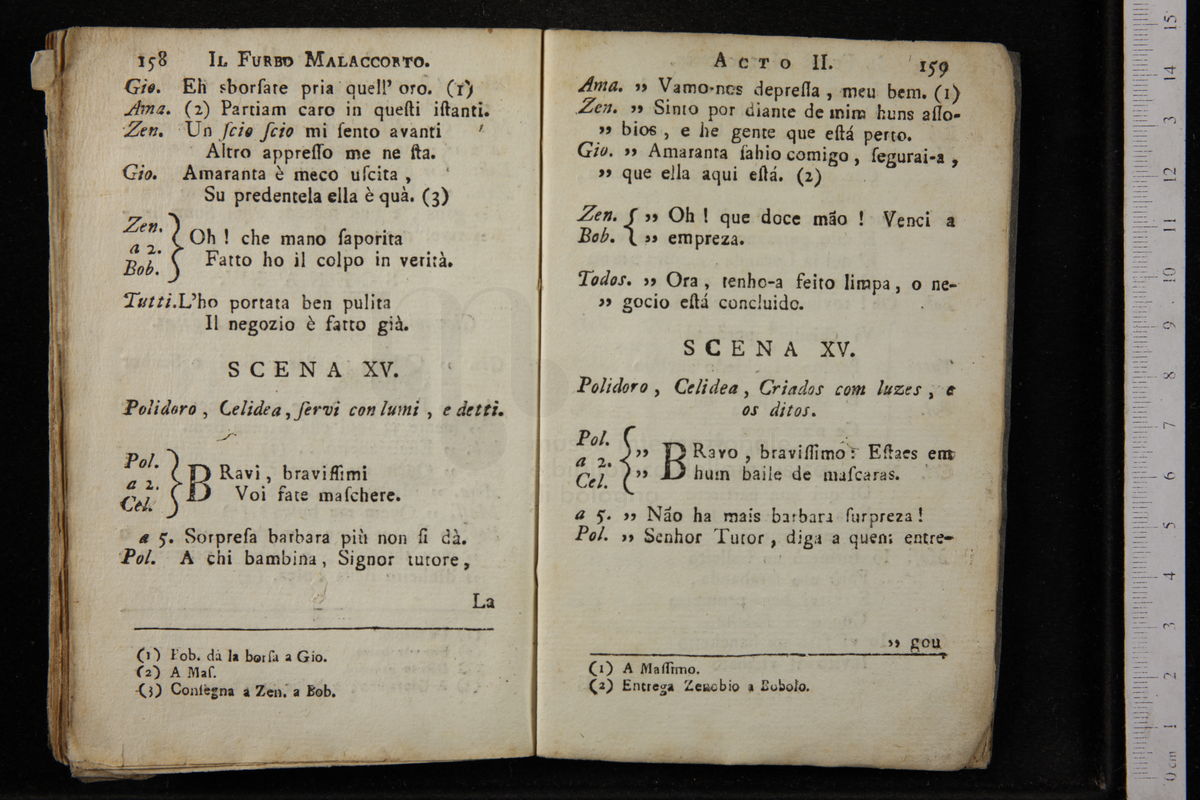 158 IL FURBO MALACCORTO.
Gio. Eh sborsare pria quell' oro. (1)
Ama. (2) Partiam caro in questi istanti.
Zen. Un scio scio mi sento avanti
Altro appresso me ne sta.
Gio. Amaranta è meco uscita ,
Su predentela ella è quà. (3)
Zen.
a 2.
Bob.
Oh ! che mano saporita
Fatto ho il colpo in verità.
Tutti. L'ho portata ben pulita
Il negozio è fatto già.
SCENA XV.
Polidoro , Celidea , servi con lumi , e detti.
Pol.
a 2.
Cel.
BRavi , bravissimi
Voi fate maschere.
a 5. Sorpresa barbara più non si dà.
Pol. A chi bambina , Signor tutore ,
La
(1) Bob. dà la borsa a Gio.
(2) A Mas.
(3) Consegna a Zen. a Bob.
ACTO II. 159
Ama. ,, Vamo-nos depressa , meu bem. (1)
Zen. ,, Sinto por diante de mim huns asso-
,, bios , e he gente que está perto.
Gio. ,, Amaranta sahio comigo , segurai-a ,
,, que ella aqui está. (2)
Zen. ,, Oh ! que doce mão ! Venci a
Bob. ,, empreza.
Todos. ,, Ora , tenho-a feito limpa , o ne-
,, gocio está concluido.
SCENA XV.
Polidoro , Celidea , Criados com luzes , e
os ditos.
Pol.
a 2.
Cel.
,, BRavo , bravissimo : Estaes em
,, hum baile de mascaras.
a 5. ,, Não ha mais barbara surpreza !
Pol. ,, Senhor Tutor , diga a quem entre-
,, gou
(1) A Massimo.
(2) Entrega Zenobio a Bobolo.
0 cm 1 2 3 4 5 6 7 8 9 10 11 12 3 14 15